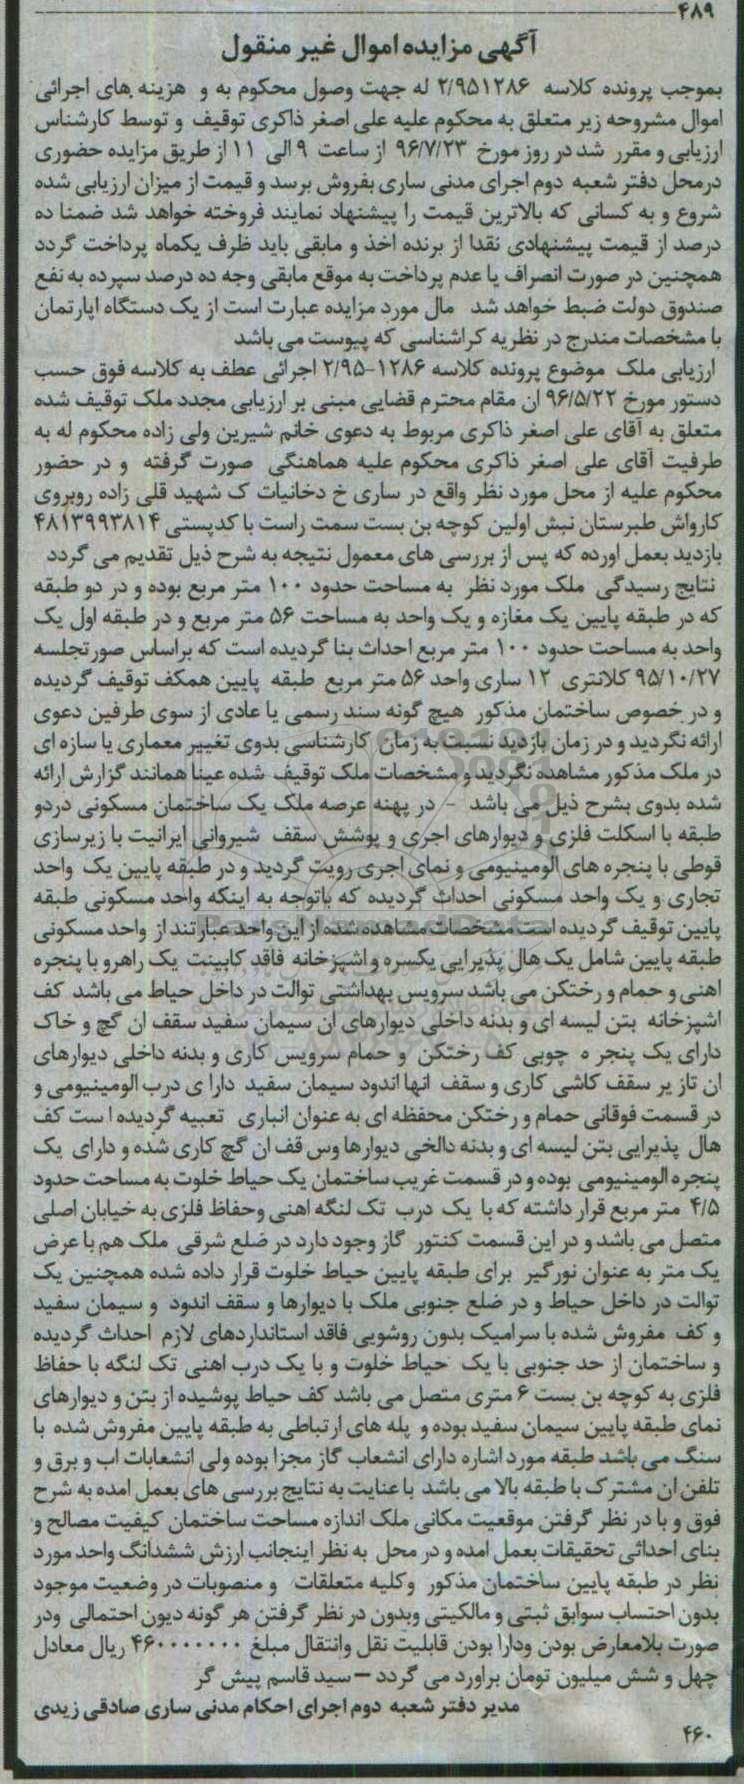 ۴۸۹
آگهی مزایده اموال غیر منقول
بموجب پرونده کلاسه ۲/۹۵۱۲۸۶ له جهت وصول محکوم به و هزینه های اجرائی
اموال مشروحه زیر متعلق به محکوم علیه علی اصغر ذاکری توقیف و توسط کارشناس
ارزیابی و مقرر شد در روز مورخ ۹۶/۷/۲۳ از ساعت ۹ الی ۱۱ از طریق مزایده حضوری
درمحل دفتر شعبه دوم اجرای مدنی ساری بفروش برسد و قیمت از میزان ارزیابی شده
شروع و به کسانی که بالاترین قیمت را پیشنهاد نمایند فروخته خواهد شد ضمنا ده
درصد از قیمت پیشنهادی نقدا از برنده اخذ و مابقی باید ظرف یکماه پرداخت گردد
همچنین در صورت انصراف یا عدم پرداخت به موقع مابقی وجه ده درصد سپرده به نفع
صندوق دولت ضبط خواهد شد مال مورد مزایده عبارت است از یک دستگاه اپارتمان
با مشخصات مندرج در نظریه کراشناسی که پیوست می باشد
ارزیابی ملک موضوع پرونده کلاسه ۱۲۸۶-۲/۹۵ اجرائی عطف به کلاسه فوق حسب
دستور مورخ ۹۶/۵/۲۲ ان مقام محترم قضایی مبنی بر ارزیابی مجدد ملک توقیف شده
متعلق به آقای علی اصغر ذاکری مربوط به دعوی خانم شیرین ولی زاده محکوم له به
طرفیت آقای علی اصغر ذاکری محکوم علیه هماهنگی صورت گرفته و در حضور
محکوم علیه از محل مورد نظر واقع در ساری خ دخانیات ک شهید قلی زاده روبروی
کارواش طبرستان نبش اولین کوچه بن بست سمت راست با کدپستی ۴۸۱۳۹۹۳۸۱۴
بازدید بعمل اورده که پس از بررسی های معمول نتیجه به شرح ذیل تقدیم می گردد
نتایج رسیدگی ملک مورد نظر به مساحت حدود ۱۰۰ متر مربع بوده و در دو طبقه
که در طبقه پایین یک مغازه و یک واحد به مساحت ۵۶ متر مربع و در طبقه اول یک
واحد به مساحت حدود ۱۰۰ متر مربع احداث بنا گردیده است که براساس صورتجلسه
۹۵/۱۰/۲۷ کلانتری ۱۲ ساری واحد ۵۶ متر مربع طبقه پایین همکف توقیف گردیده
و در خصوص ساختمان مذکور هیچ گونه سند رسمی یا عادی از سوی طرفین دعوی
ارائه نگردید و در زمان بازدید نسبت به زمان کارشناسی بدوی تغییر معماری یا سازه ای
در ملک مذکور مشاهده نگردید و مشخصات ملک توقیف شده عینا همانند گزارش ارائه
شده بدوی بشرح ذیل می باشد - در پهنه عرصه ملک یک ساختمان مسکونی دردو
طبقه با اسکلت فلزی و دیوارهای اجری و پوشش سقف شیروانی ایرانیت با زیرسازی
قوطی با پنجره های الومینیومی و نمای اجری رویت گردید و در طبقه پایین یک واحد
تجاری و یک واحد مسکونی احداث گردیده که باتوجه به اینکه واحد مسکونی طبقه
پایین توقیف گردیده است مشخصات مشاهده شده از این واحد عبارتند از واحد مسکونی
طبقه پایین شامل یک هال پذیرایی یکسره و اشپزخانه فاقد کابینت یک راهرو با پنجره
اهنی و حمام و رختکن می باشد سرویس بهداشتی توالت در داخل حیاط می باشد کف
اشپزخانه بتن لیسه ای و بدنه داخلی دیوارهای ان سیمان سفید سقف ان گچ و خاک
دارای یک پنجر ه چوبی کف رختکن و حمام سرویس کاری و بدنه داخلی دیوارهای
ان تاز یر سقف کاشی کاری و سقف انها اندود سیمان سفید دارا ی درب الومینیومی و
در قسمت فوقانی حمام و رختکن محفظه ای به عنوان انباری تعبیه گردیده ا ست کف
هال پذیرایی بتن لیسه ای و بدنه دالخی دیوارها وس قف ان گچ کاری شده و دارای یک
پنجره الومینیومی بوده و در قسمت غریب ساختمان یک حیاط خلوت به مساحت حدود
۴/۵ متر مربع قرار داشته که با یک درب تک لنگه اهنی وحفاظ فلزی به خیابان اصلی
متصل می باشد و در این قسمت کنتور گاز وجود دارد در ضلع شرقی ملک هم با عرض
یک متر به عنوان نورگیر برای طبقه پایین حیاط خلوت قرار داده شده همچنین یک
توالت در داخل حیاط و در ضلع جنوبی ملک با دیوارها و سقف اندود و سیمان سفید
و کف مفروش شده با سرامیک بدون روشویی فاقد استانداردهای لازم احداث گردیده
و ساختمان از حد جنوبی با یک حیاط خلوت و با یک درب اهنی تک لنگه با حفاظ
فلزی به کوچه بن بست ۶ متری متصل می باشد کف حیاط پوشیده از بتن و دیوارهای
نمای طبقه پایین سیمان سفید بوده و پله های ارتباطی به طبقه پایین مفروش شده با
سنگ می باشد طبقه مورد اشاره دارای انشعاب گاز مجزا بوده ولی انشعابات اب و برق و
تلفن ان مشترک با طبقه بالا می باشد با عنایت به نتایج بررسی های بعمل امده به شرح
فوق و با در نظر گرفتن موقعیت مکانی ملک اندازه مساحت ساختمان کیفیت مصالح و
بنای احداثی تحقیقات بعمل امده و در محل به نظر اینجانب ارزش ششدانگ واحد مورد
نظر در طبقه پایین ساختمان مذکور وکلیه متعلقات و منصوبات در وضعیت موجود
بدون احتساب سوابق ثبتی و مالکیتی وبدون در نظر گرفتن هر گونه دیون احتمالی ودر
صورت بلامعارض بودن ودارا بودن قابلیت نقل وانتقال مبلغ ۴۶۰۰۰۰۰۰۰ ریال معادل
چهل و شش میلیون تومان براورد می گردد – سید قاسم پیش گر
مدیر دفتر شعبه دوم اجرای احکام مدنی ساری صادقی زیدی
۴۶۰
ParsNamadData